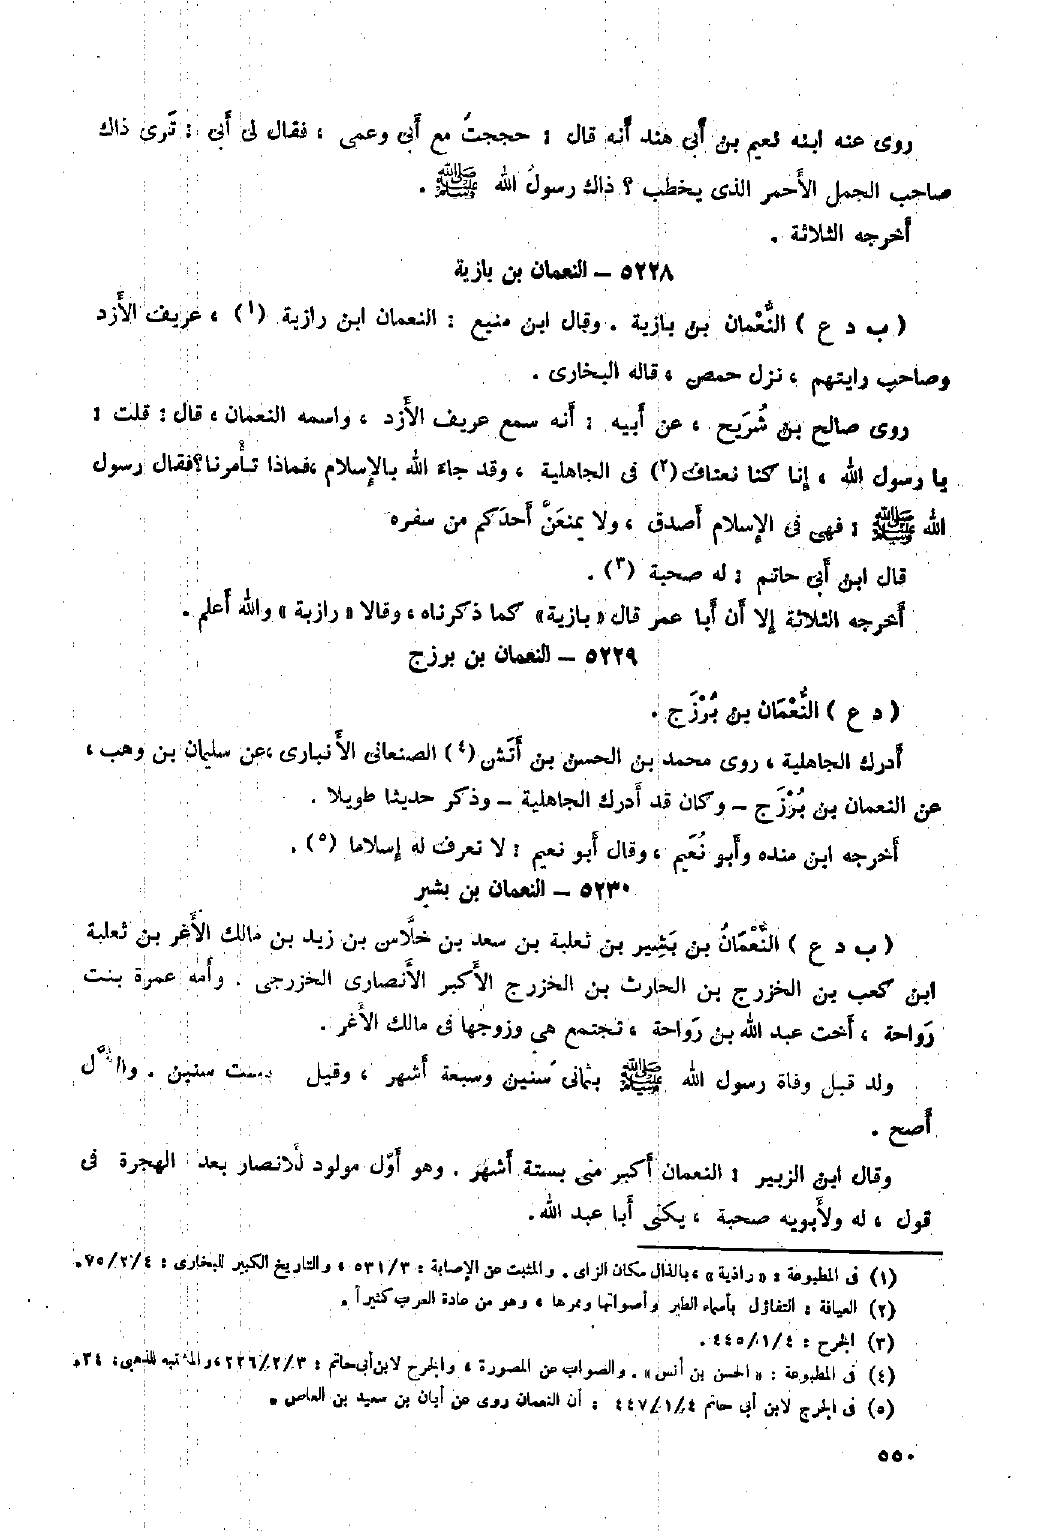 روى عنه ابنه نعيم بن أبى هند أنه قال : حججتُ مع أبى وعمى ، فقال لى أبى : تَرى ذاك
صاحب الجمل الأحمر الذى يخطب ؟ ذاك رسولُ الله ﷺ .
أخرجه الثلاثة .
٥٢٢٨ – النعمان بن بازية
( ب د ع ) النُّعْمان بن بازية . وقال ابن منيع : النعمان ابن رازية (١) ، عريف الأَزد
وصاحب رايتهم ، نزل حمص ، قاله البخارى .
روى صالح بن شُرَيح ، عن أَبيه : أَنه سمع عريف الأَزد ، واسمه النعمان ، قال : قلت :
يا رسول الله ، إنا كنا نعتاف(٢) فى الجاهلية ، وقد جاءَ الله بالإسلام ،فماذا تأْمرنا؟فقال رسول
الله ﷺ : فهى فى الإسلام أَصدق ، ولا يمنعَنَّ أَحدَكم من سفره
قال ابن أَبى حاتم : له صحبة (٣) .
أَخرجه الثلاثة إلا أن أَبا عمر قال «بازية» كما ذكرناه ، وقالا « رازية » والله أَعلم .
٥٢٢٩ – النعمان بن برزج
( د ع ) النُّعْمَان بن بُرْزَج .
أَدرك الجاهلية ، روى محمد بن الحسن بن أَتَش (٤) الصنعانى الأَنبارى ،عن سليمان بن وهب ،
عن النعمان بن بُرْزَج – وكان قد أَدرك الجاهلية – وذكر حديثا طويلا .
أخرجه ابن منده وأَبو نُعَيم ، وقال أَبو نعيم : لا تعرف له إسلاما (٥) .
٥٢٣٠ – النعمان بن بشير
( ب د ع ) النُّعْمَانُ بن بَشِير بن ثعلبة بن سعد بن خلَّاس بن زيد بن مالك الأَغر بن ثعلبة
ابن كعب بن الخزرج بن الحارث بن الخزرج الأَكبر الأَنصارى الخزرجى . وأمه عمرة بنت
رَواحة ، أَخت عبد الله بن رَواحة ، تجتمع هى وزوجُها فى مالك الأَغر .
ولد قبل وفاة رسول الله ﷺ بثمانى سنين وسبعة أَشهر ، وقيل بست سنين . والأَوَّل
أَصح .
وقال ابن الزبير : النعمان أَكبر منى بستة أَشهر . وهو أَوّل مولود للأَنصار بعد الهجرة فى
قول ، له ولأَبويه صحبة ، يكنى أَبا عبد الله.
(١) فى المطبوعة : « راذية » ، بالذال مكان الزاى . والمثبت عن الإصابة : ٥٣١/٣ ، والتاريخ الكبير للبخارى : ٧٥/٢/٤.
(٢) العيافة : التفاؤل بأسماء الطير وأصواتها وممرها ، وهو من عادة العرب كثيراً .
(٣) الجرح : ٤٤٥/١/٤ .
(٤) فى المطبوعة : « الحسن بن أنس » . والصواب عن المصورة ، والجرح لابن أبى حاتم : ٢٢٦/٢/٣ ، والمشتبه للذهبى : ٣٤.
(٥) فى الجرح لابن أبى حاتم ٤٤٧/١/٤ : أن النعمان روى عن أبان بن سعيد بن العاص .
٥٥٠